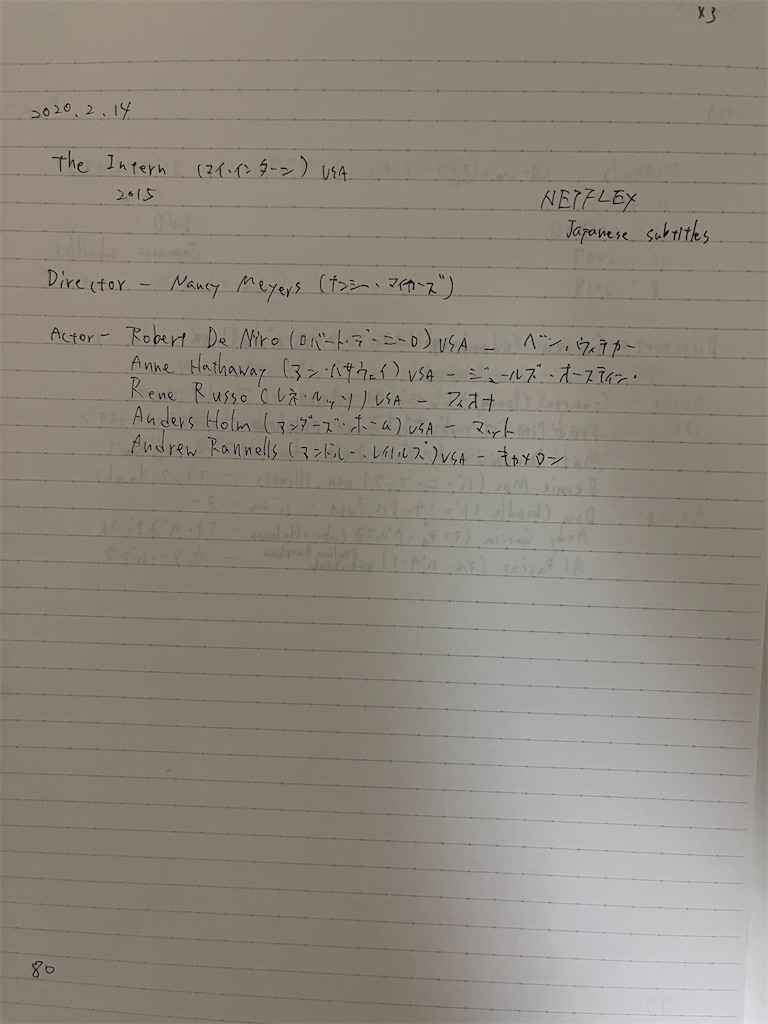 x3
2020.2.14
The Intern (マイ・インターン) USA
2015
NETFLEX
Japanese subtitles
Director - Nancy Meyers (ナンシー・マイヤーズ)
Actor - Robert De Niro (ロバート・デ・ニーロ) USA - ベン・ウィテカー
Anne Hathaway (アン・ハサウェイ) USA - ジュールズ・オースティン・
Rene Russo (レネ・ルッソ) USA - フィオナ
Anders Holm (アンダーズ・ホーム) USA - マット
Andrew Rannells (アンドルー・レイネルズ) USA - キャメロン
80